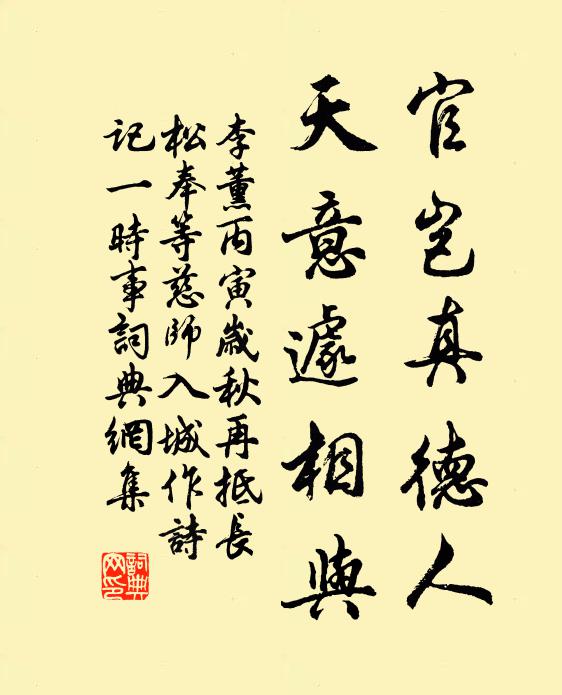 官岂真德人
天意遽相與
李薰丙寅歲秋再抵長
松奉等慈師入城作詩
記一時事詞典網集
詞典
网印